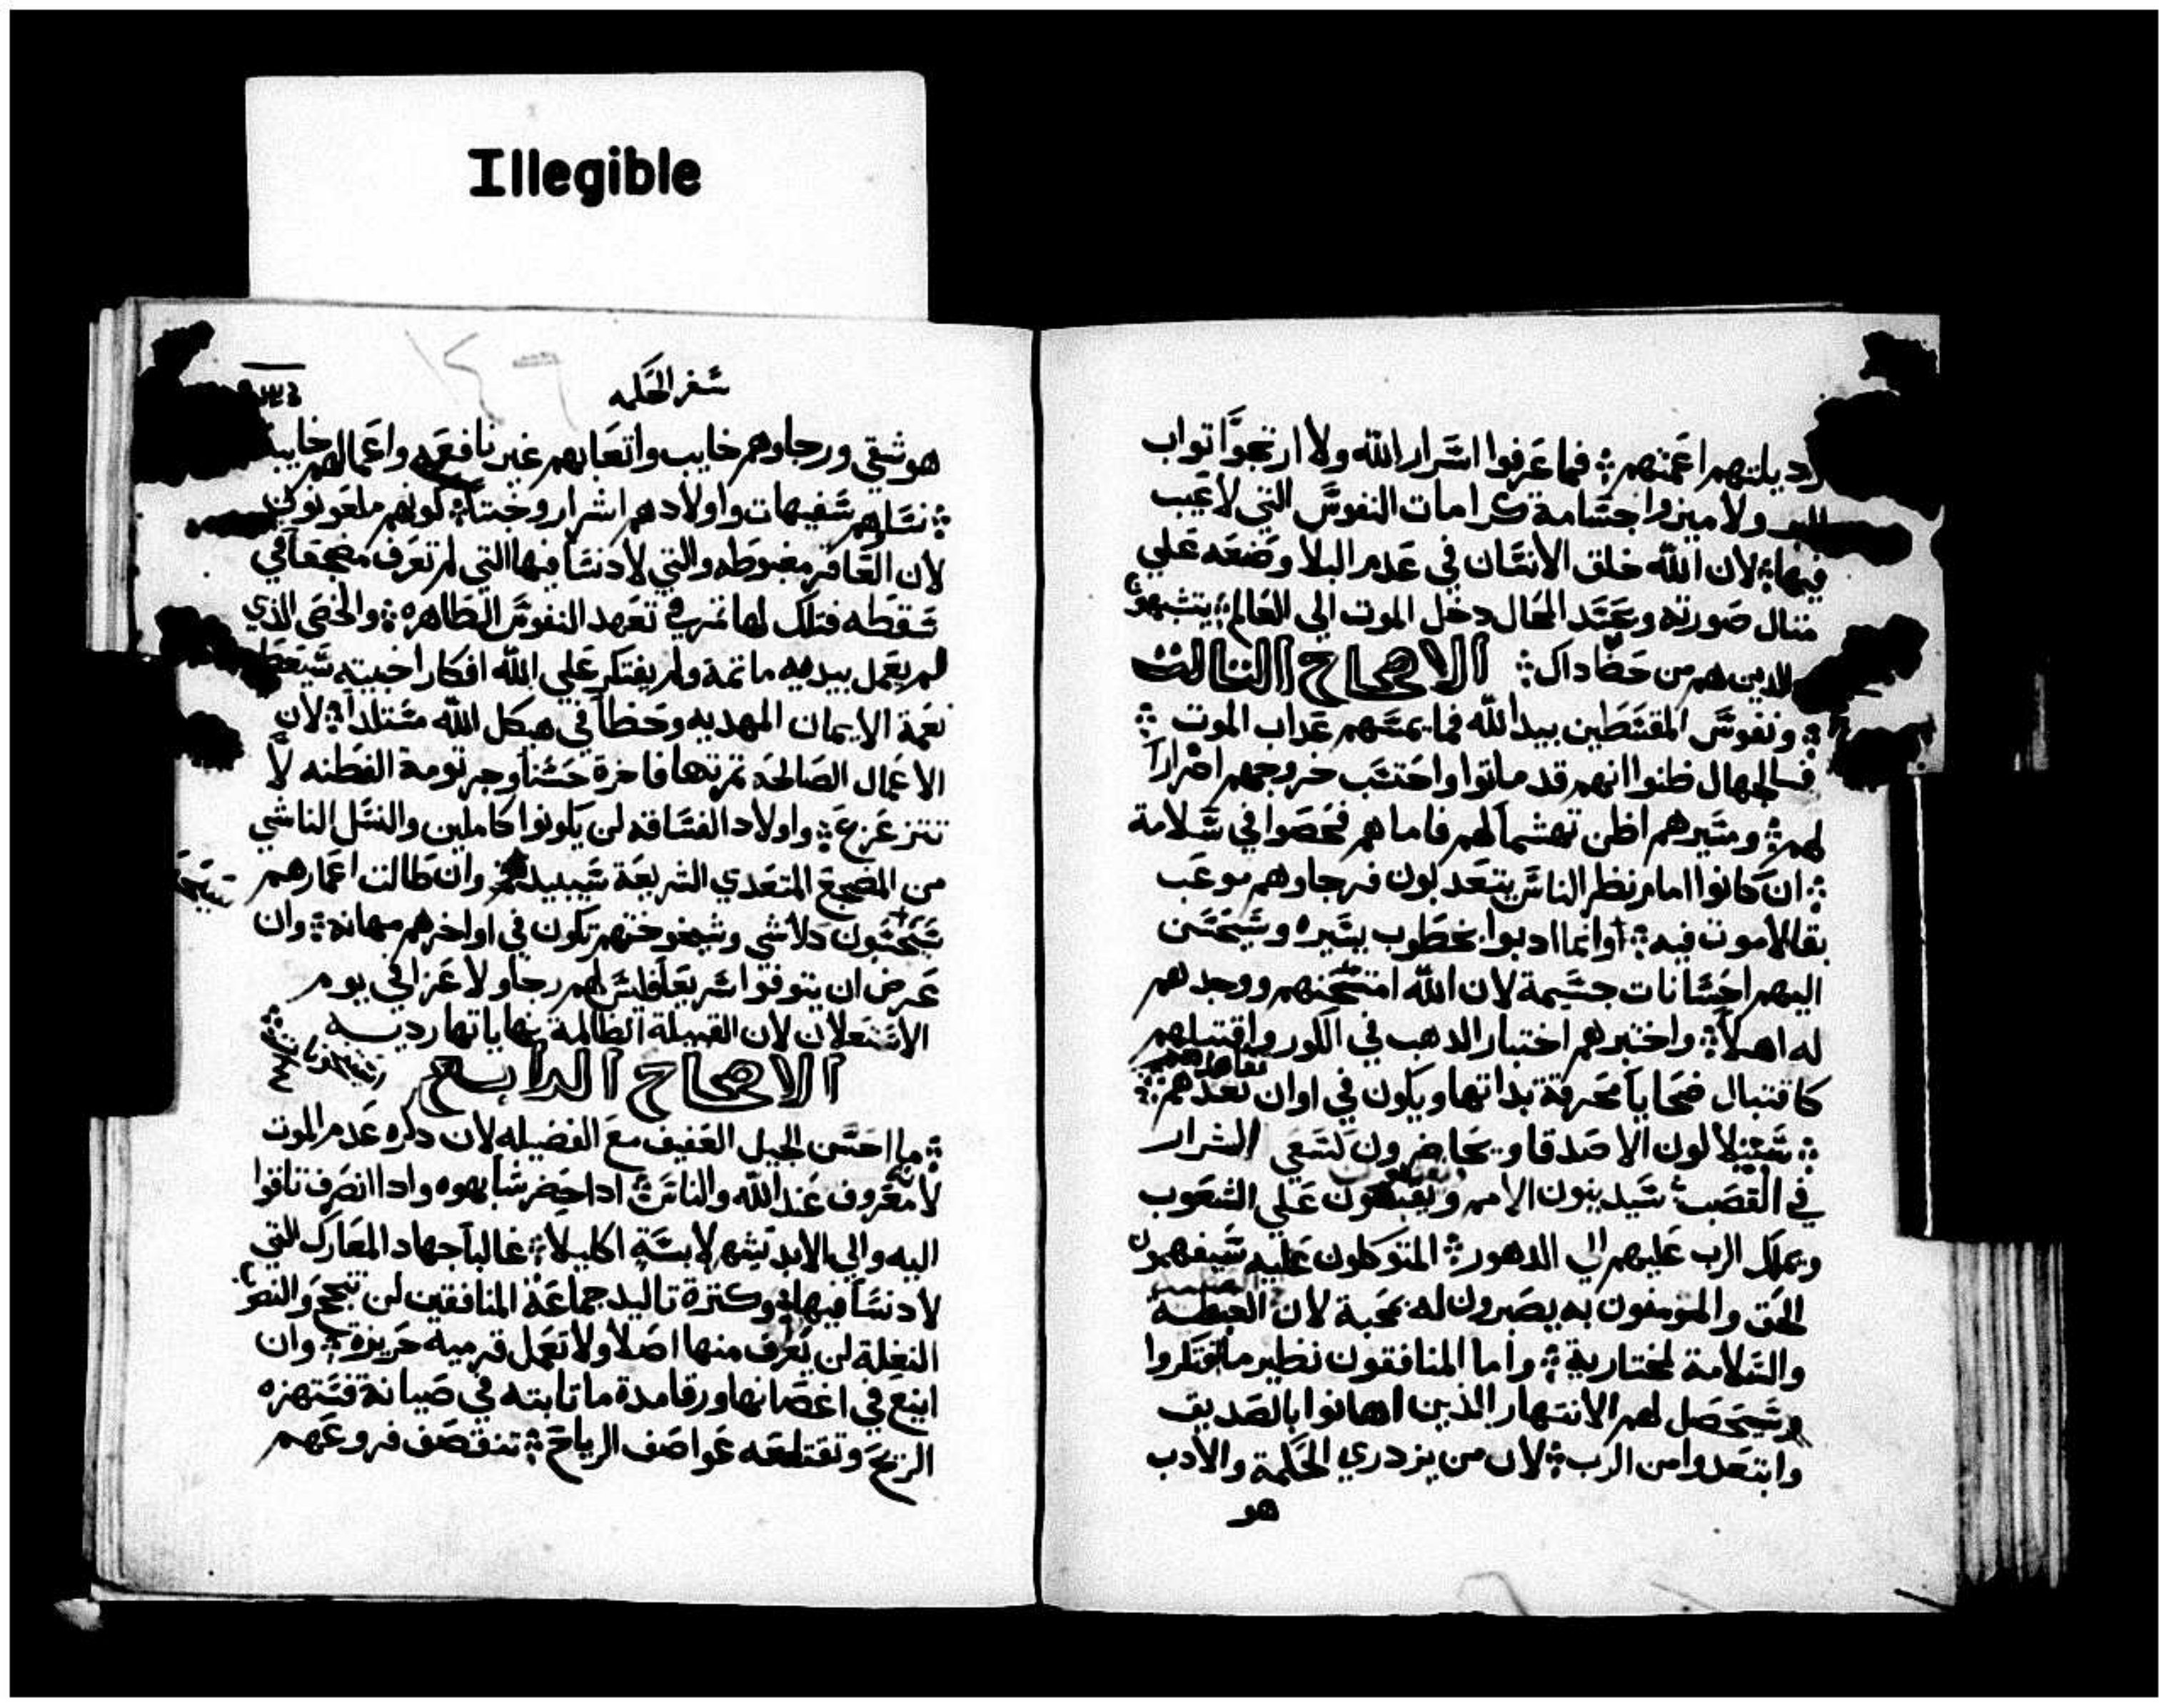 Illegible
رديلتهم اعمتهم فما عرفوا اسرار الله ولا ارتجوا تواب
ولا ميزوا جسامة كرامات النفوس التي لا عيب
فيها لان الله خلق الانسان في عدم البلا وضعه علي
متال صورته وعند المحال دخل الموت الي العالم يتشبهون
الدين هم من حظ داك الاصحاح التالت
ونفوس المقتسطين بيد الله فما يمسهم عداب الموت
فالجهال ظنوا انهم قد ماتوا واحتسب خروجهم اضرارا
لهم ومسيرهم اظن تهشما لهم فاما هم فحصوا في سلامة
ان كانوا امام نظر الناس يتعدبون فرجاوهم موعب
بقا لا موت فيه وانما ادبوا بخطوب يسيره وسيحسن
اليهم احسانات جسيمة لان الله امتحنهم ووجدهم
له اهلا واختبرهم اختبار الدهب في الكور واقتبلهم
كاقتبال ضحايا محرقة بداتها ويكون في اوان تعهدهم
سيتلالون الاصدقا ويحاضرون كسعي الشرار
في القصب سيدينون الامم علي الشعوب
ويملك الرب عليهم الي الدهور المتوكلون عليه سيفهمون
الحق والمومنون به يصبرون له بمحبة لان
والسلامة لمختاريه واما المنافقون نظير ما افتكروا
وسيحصل لهم الانتهار الذين اهانوا بالصديق
وابتعدوا من الرب لان من يزدري الحكمة والادب
هو
سفر الحكمه
هو شقي ورجاوهم خايب واتعابهم غير نافعه واعمالهم خايبة
نساهم سفيهات واولادهم اشرار وخبتا كونهم ملعونون
لان العاقر مغبوطه والتي لا دنسا فيها التي لم تعرف مضجعا في
سقطه فتلك لها تمره في تعهد النفوس الطاهره والخصي الذي
لم يعمل بيديه ماتمة ولم يفتكر علي الله افكارا خبيته سيعطا
نعمة الايمان المهديه وحظا في هيكل الله مستلدا لان
الاعمال الصالحه تمرتها فاخرة حسنا وجرتومة الفطنه لا
تتزعزع واولاد الفساقه لن يكونوا كاملين والنسل الناشي
من المضجع المتعدي الشريعة سيبيد وان طالت اعمارهم
سيحسبون كلاشي وشيخوختهم تكون في اواخرهم مهانه وان
عرض ان يتوفوا سريعا فليس لهم رجا ولا عزا في يوم
الاستعلان لان القبيلة الظالمة نهاياتها رديه
الاصحاح الرابع
ما احسن الجيل العفيف مع الفضيله لان دكره عدم الموت
لانه معروف عند الله والناس ادا حضر شابهوه وادا انصرف تاقوا
اليه والي الابد تشهر لابسة اكليلا غالبا جهاد المعارك التي
لا دنسا فيها وكترة تاليد جماعة المنافقين لن تنجح والنصوب
النغلة لن تعرف منها اصلا ولا تعمل قرميه حريزة وان
اينع في اغصانها ورقا مدة ما تابته في صيانة فستهزه
الريح وتقتلعه عواصف الرياح تنقصف فروعهم